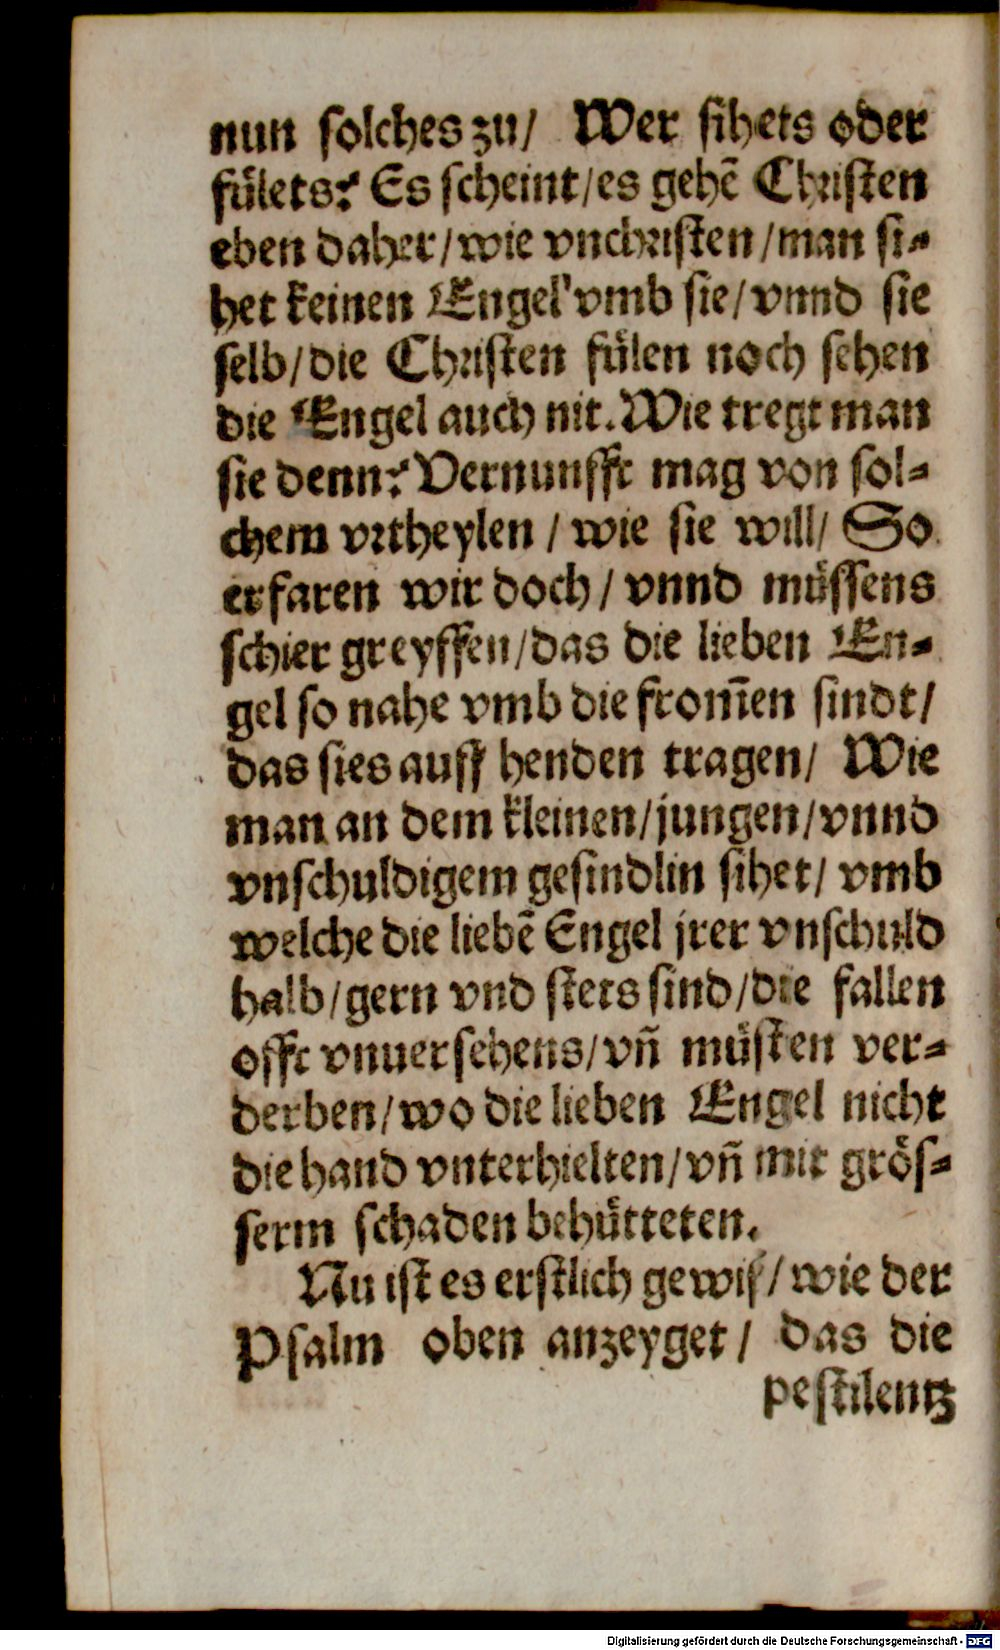 nun solches zu/ Wer sihets oder
fülets? Es scheint/es gehē Christen
eben daher/wie vnchristen/man si⸗
het keinen Engel vmb sie/vnnd sie
selb/die Christen fülen noch sehen
die Engel auch nit. Wie tregt man
sie denn? Vernunfft mag von sol⸗
chem vrtheylen / wie sie will/ So
erfaren wir doch/ vnnd müssens
schier greyffen/das die lieben En⸗
gel so nahe vmb die from̄en sindt/
das sies auff henden tragen/ Wie
man an dem kleinen/jungen/vnnd
vnschuldigem gesindlin sihet/ vmb
welche die liebē Engel jrer vnschuld
halb/gern vnd stets sind/die fallen
offt vnuersehens/vn̄ müsten ver⸗
derben/wo die lieben Engel nicht
die hand vnterhielten/vn̄ mit grös⸗
serm schaden behütteten.
Nu ist es erstlich gewiß/wie der
Psalm oben anzeyget/ das die
pestilentz
Digitalisierung gefördert durch die Deutsche Forschungsgemeinschaft - DFG